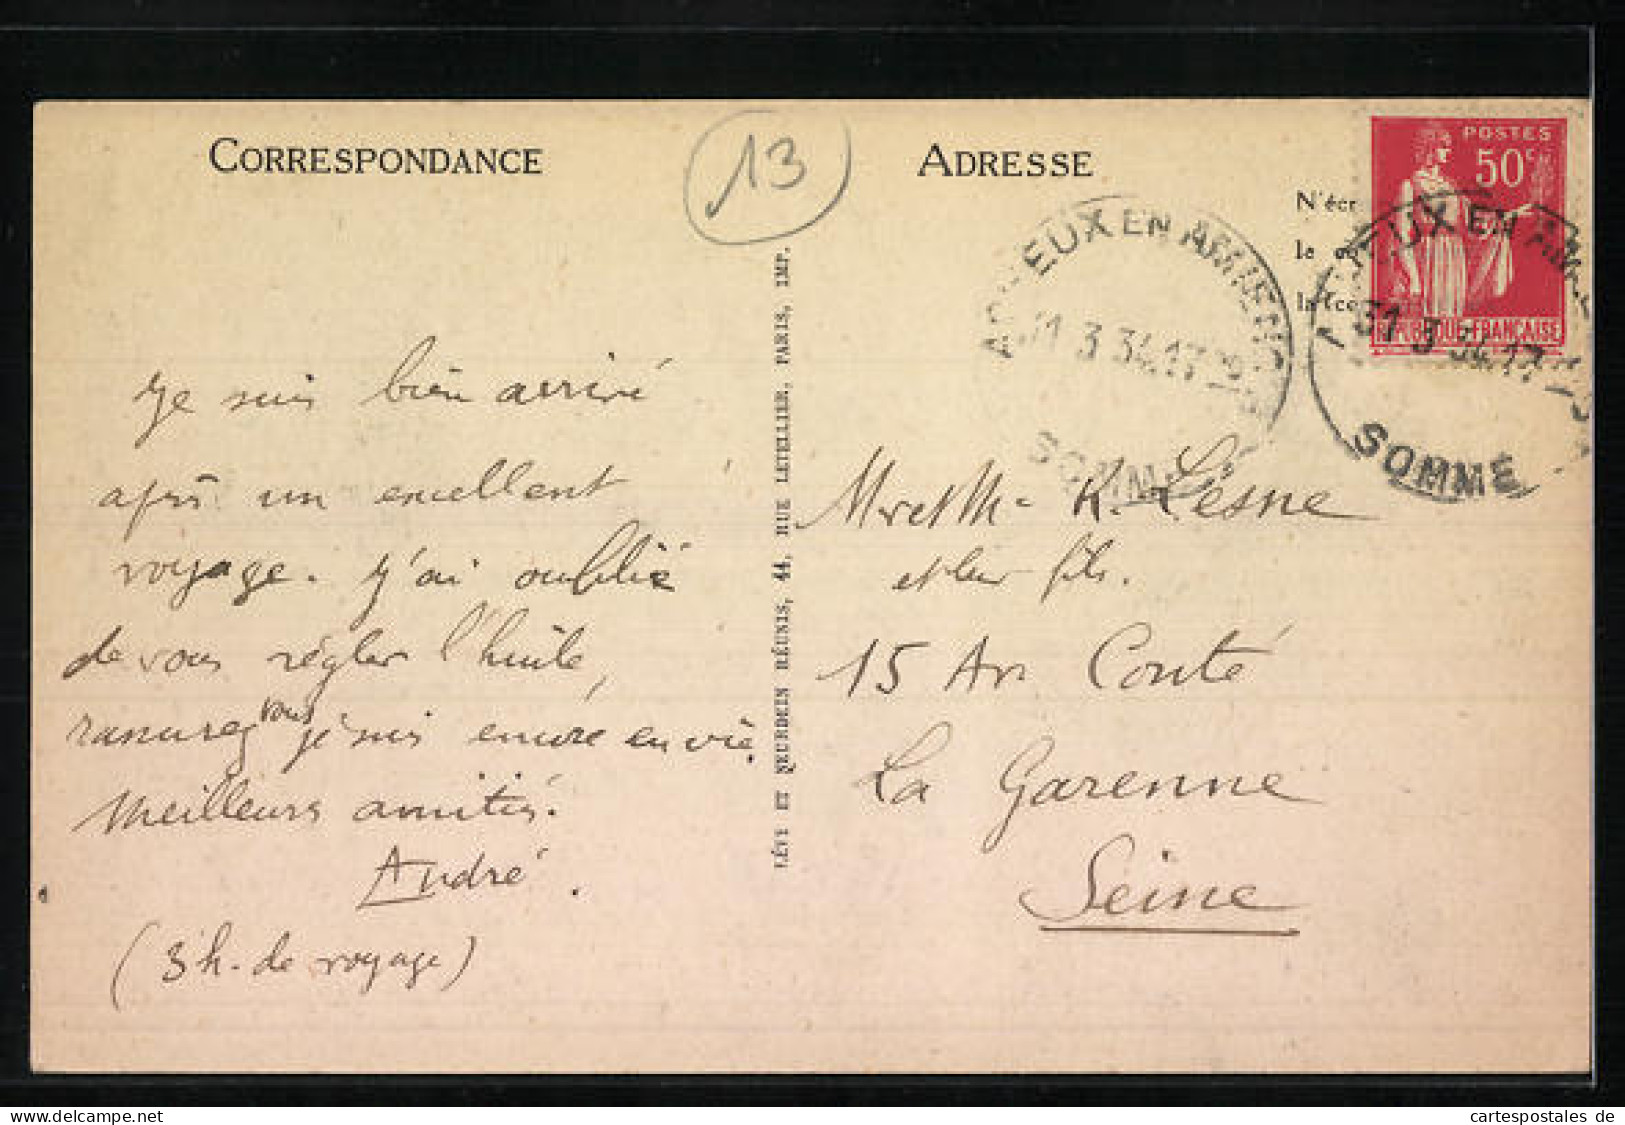 CORRESPONDANCE
13
ADRESSE
N'écr
la
la
POSTES
50
REPUBLIQUE FRANÇAISE
EUX EN AMIENOIS
31 3 34 17
SOMME
EUX EN AM
31 3 34 17
SOMME
LÉVY ET NEURDEIN RÉUNIS, 44, RUE LETELLIER, PARIS, IMP.
Je suis bien arrivé
après un excellent
voyage. J'ai oublié
de vous régler l'huile,
rassurez vous je suis encore en vie.
Meilleurs amitiés.
André.
(3 h. de voyage)
Mr et Me R. Lesne
et leur fils.
15 Av Conté
La Garenne
Seine
cartespostales de